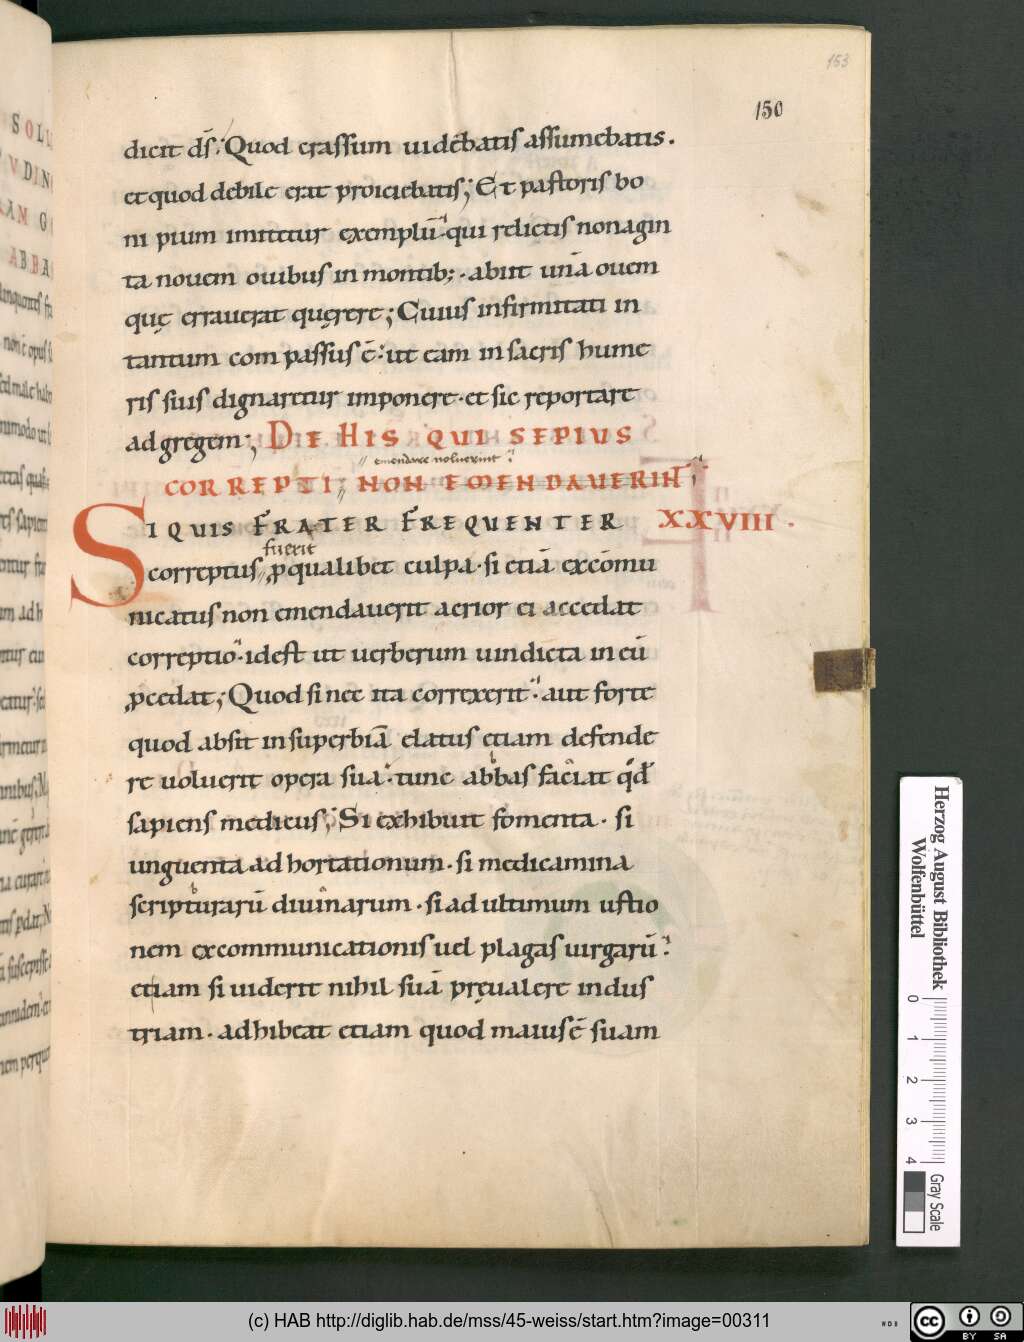 153
150
dicit dſ̄. Quod craſſum uidebatiſ aſſumebatis.
et quod debile erat proiciebatiſ; Et paſtoriſ bo
ni pium imitetur exemplū. qui relictiſ nonagin
ta nouem ouibuſ in montib;. abiit unā ouem
quę erraverat quęrere; Cuiuſ infirmitati in
tantum compaſſuſ ē. ut eam in ſacriſ hume
riſ ſuiſ dignaretur imponere. et ſic reportare
ad gregem; DE HIS QUI SEPIUS
emendare noluerint
CORREPTI NON EMENDAUERINT
SI QUIS FRATER FREQUENTER XXVIII.
fuerit
correptuſ ꝓ qualibet culpa. ſi etiā excōmu
nicatuſ non emendauerit acrior ei accedat
correptio. id eſt ut uerberum uindicta in eū
ꝓcedat; Quod ſi nec ita correxerit. aut forte
quod abſit in ſuperbiā elatuſ etiam defende
re uoluerit opera ſua. tunc abbas faciat qd̄
ſapienſ medicuſ; Si exhibuit fomenta. ſi
unguenta adhortationum. ſi medicamina
ſcripturarū diuinarum. ſi ad ultimum uſtio
nem excommunicationiſ uel plagaſ uirgarū.
etiam ſi uiderit nihil ſuā pręualere induſ
triam. adhibeat etiam quod maiuſ ē ſuam
Herzog August Bibliothek
Wolfenbüttel
0 1 2 3 4
Gray Scale
(c) HAB http://diglib.hab.de/mss/45-weiss/start.htm?image=00311
cc BY SA